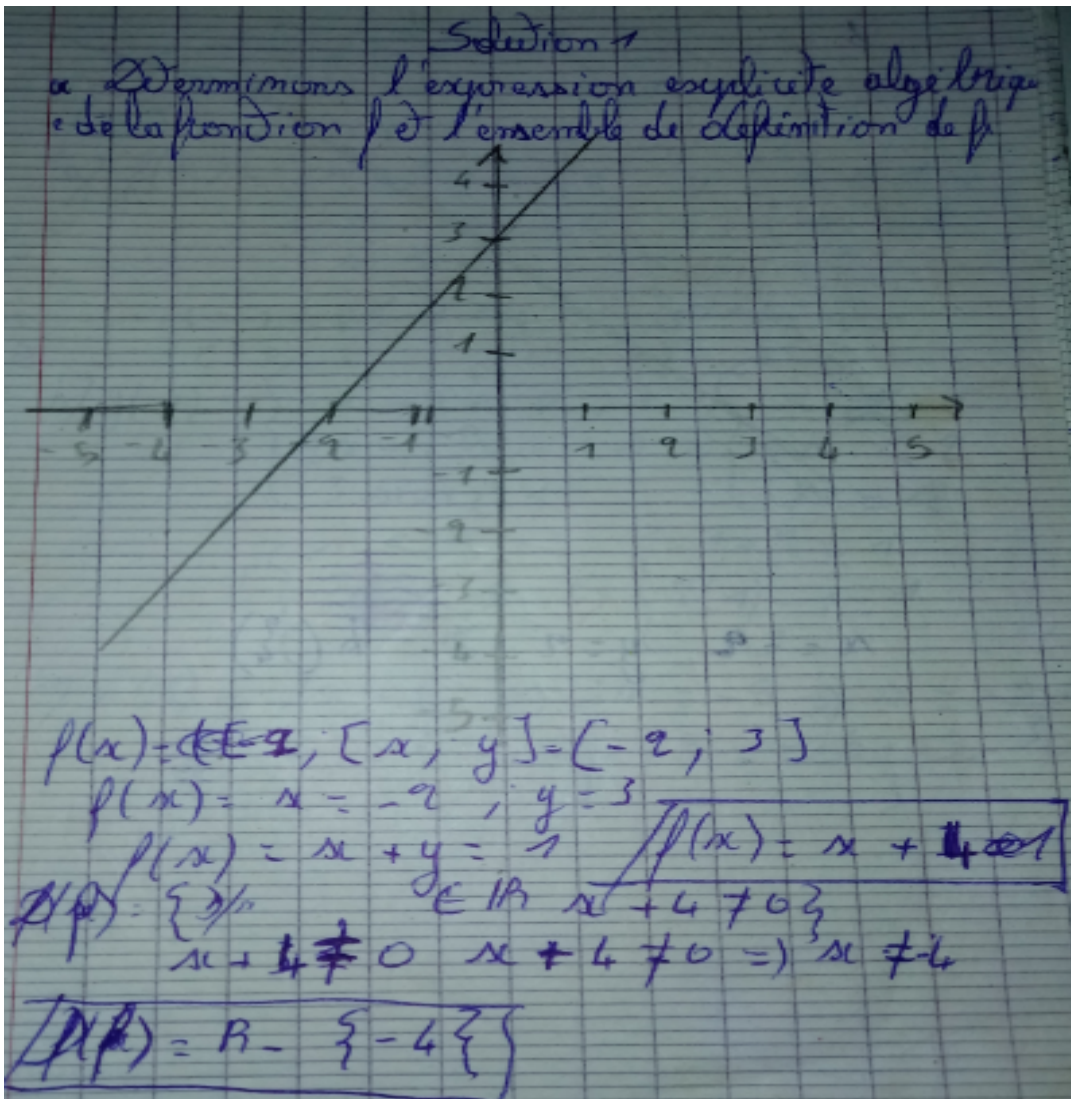 Solution 1
a Determinons l'expression explicite algébriqu
e de la fonction f et l'ensemble de définition de f
4
3
2
1
-5 -4 -3 -2 -1 1 2 3 4 5
-1
-2
-3
-4
-5
f(x)= , [x, y]=[-2; 3]
f(x)= x = -2 , y = 3
f(x) = x + y = 1
f(x) = x + 4
D(f) = { ∈ IR x + 4 ≠ 0}
x + 4 ≠ 0 x + 4 ≠ 0 => x ≠ -4
D(f) = R - {-4{